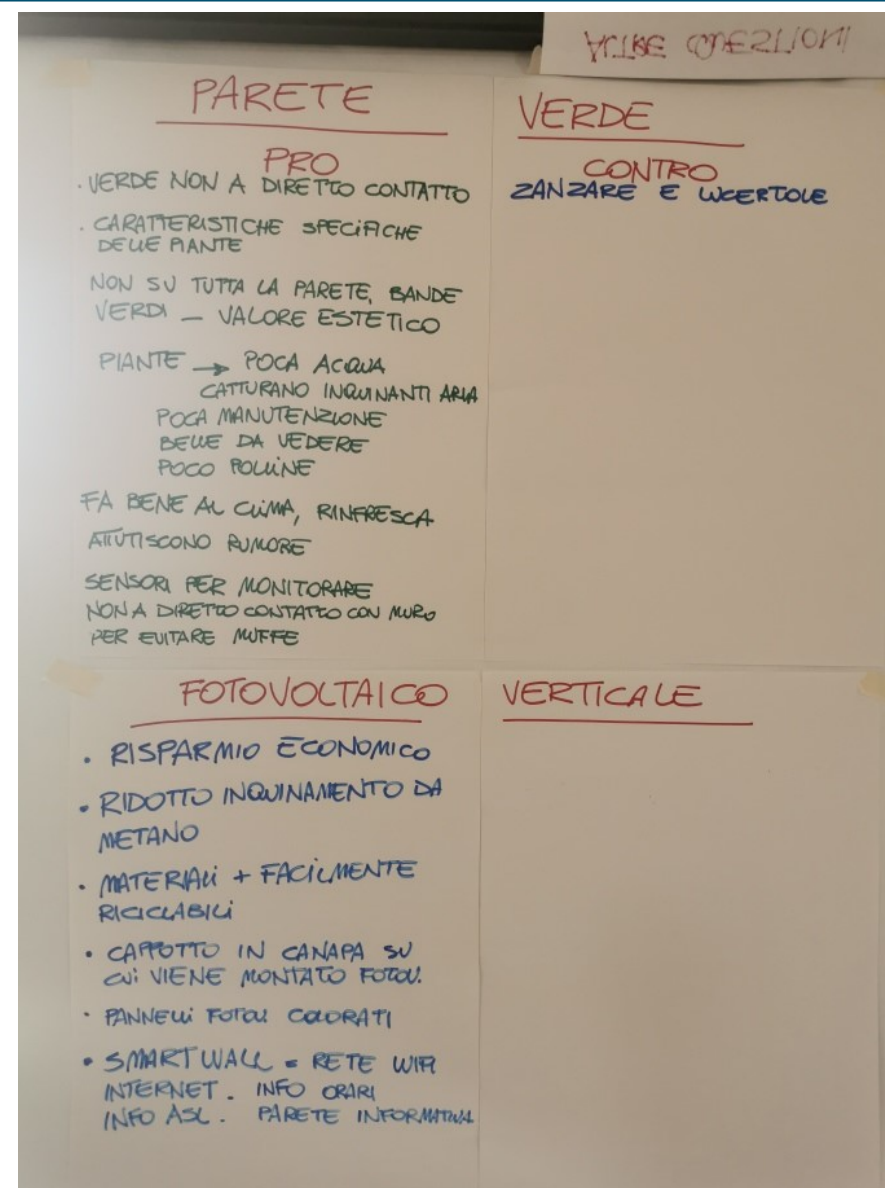 ALTRE QUESTIONI
PARETE VERDE
PRO
. VERDE NON A DIRETTO CONTATTO
. CARATTERISTICHE SPECIFICHE
DELLE PIANTE
NON SU TUTTA LA PARETE, BANDE
VERDI - VALORE ESTETICO
PIANTE → POCA ACQUA
CATTURANO INQUINANTI ARIA
POCA MANUTENZIONE
BELLE DA VEDERE
POCO POLLINE
FA BENE AL CLIMA, RINFRESCA
ATTUTISCONO RUMORE
SENSORI PER MONITORARE
NON A DIRETTO CONTATTO CON MURO
PER EVITARE MUFFE
CONTRO
ZANZARE E LUCERTOLE
FOTOVOLTAICO VERTICALE
• RISPARMIO ECONOMICO
• RIDOTTO INQUINAMENTO DA
METANO
• MATERIALI + FACILMENTE
RICICLABILI
• CAPPOTTO IN CANAPA SU
CUI VIENE MONTATO FOTOV.
• PANNELLI FOTOV. COLORATI
• SMART WALL = RETE WIFI
INTERNET. INFO ORARI
INFO ASL. PARETE INFORMATIVA